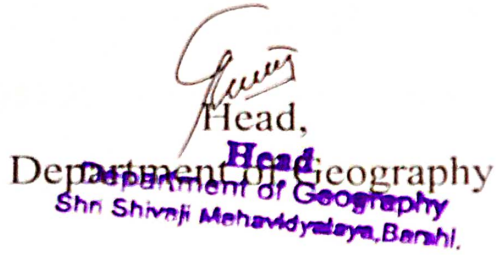 Head,
Head
Department of Geography
Department of Geography
Shri Shivaji Mahavidyalaya, Barshi.